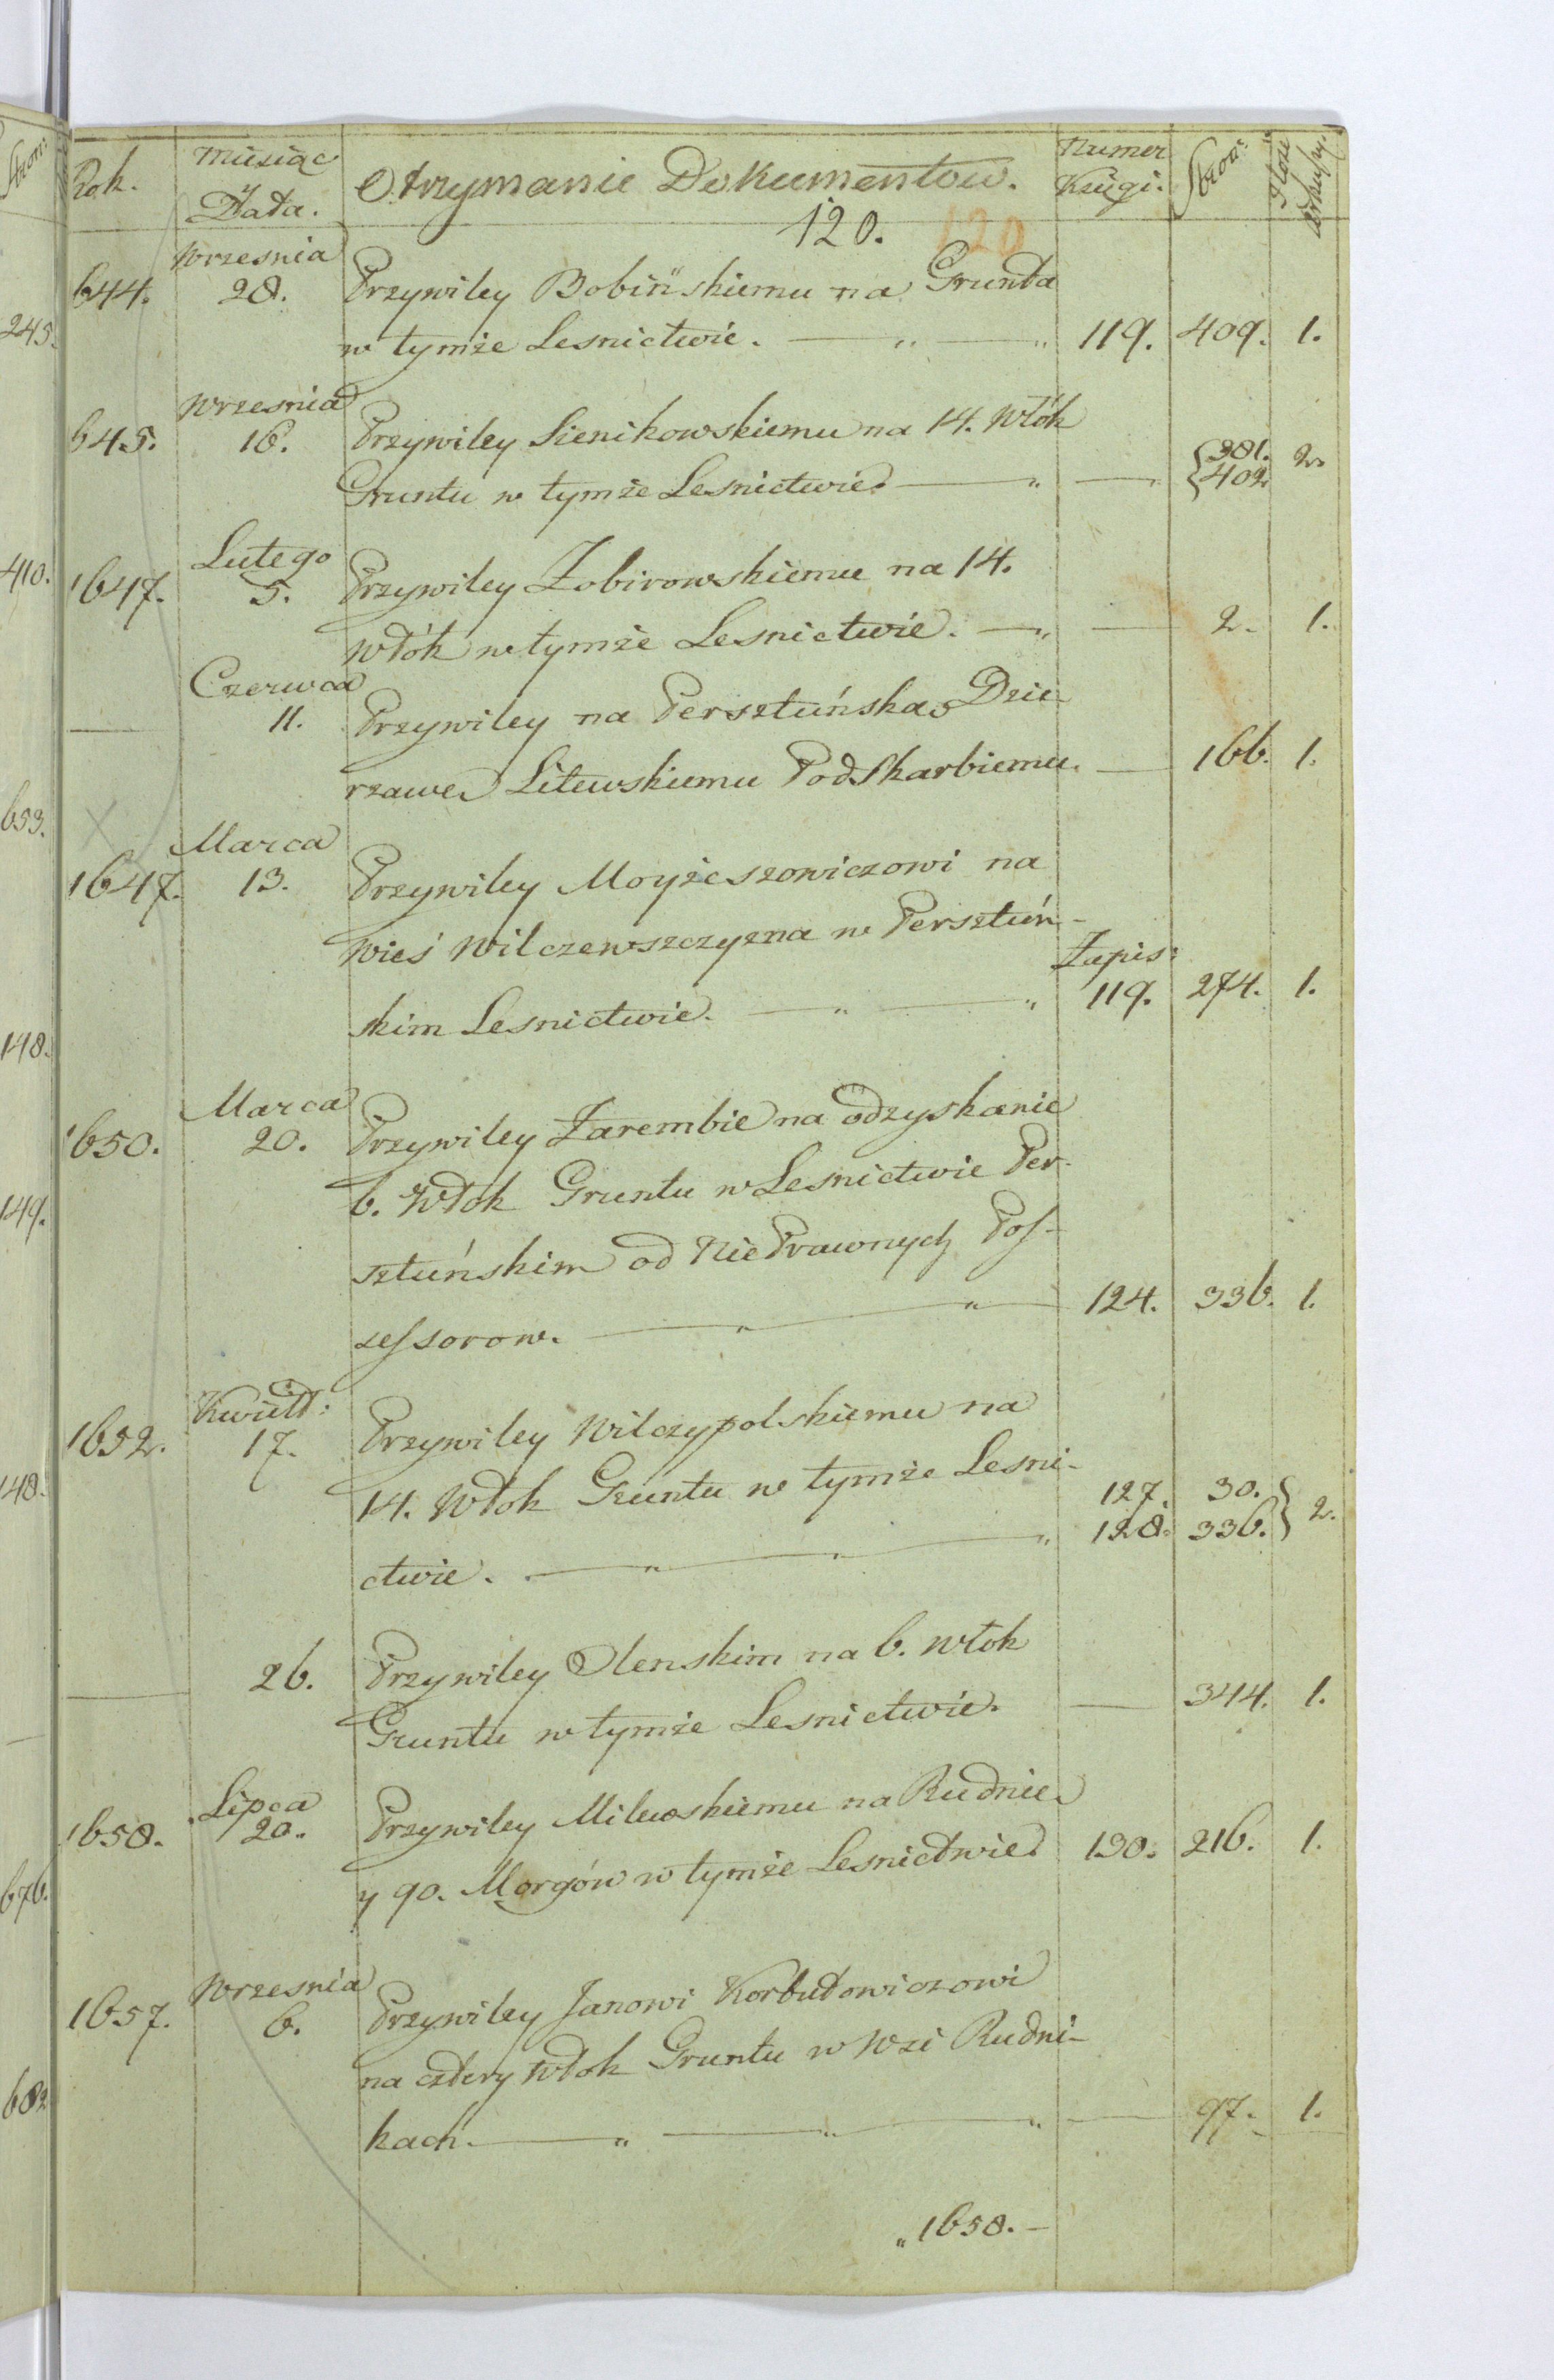 Rok. Miesiąc y Data. Otrzymanie Dokumentow. Numer Księgi. Stron: Ilość Arkuszy.
120. 120
644. Wrzesnia 28. Przywiley Bobińskiemu na Grunta
w tymże Lesnictwie. 119. 409. 1.
645. Wrzesnia 16. Przywiley Sienikowskiemu na 14. Włók
Gruntu w tymże Lesnictwie. — {381. 402. 2.
1647. Lutego 5. Przywiley Zobirowskiemu na 14.
Włók w tymże Lesnictwie. — 2. 1.
— Czerwca 11. Przywiley na Persztuńską Dzie-
rzawę Litewskiemu PodSkarbiemu. — 166. 1.
1647. Marca 13. Przywiley Moyżeszowiczowi na
Wieś Wilczewszczyzna w Persztuń-
Zapis:
skim Lesnictwie. 119. 274. 1.
1650. Marca 20. Przywiley Zarembie na odzyskanie
6. Włok Gruntu w Lesnictwie Per-
sztuńskim od NiePrawnych Pos-
sessorow. 124. 336. 1.
1652. Kwiet: 17. Przywiley Wilczypolskiemu na
14. Włok Gruntu w tymże Lesni-
127. 30.
128. 336. } 2.
ctwie.
— 26. Przywiley Olenskim na 6. Włok
Gruntu w tymże Lesnictwie. — 344. 1.
1658. Lipca 20. Przywiley Milewskiemu na Rudnie
y 90. Morgów w tymże Lesnictwie. 130. 216. 1.
1657. Wrzesnia 6. Przywiley Janowi Korbutowiczowi
na cztery Włok Gruntu w Wsi Rudni-
kach. — 97. 1.
„1658.—
245.
410.
653.
148.
149.
148.
676.
682